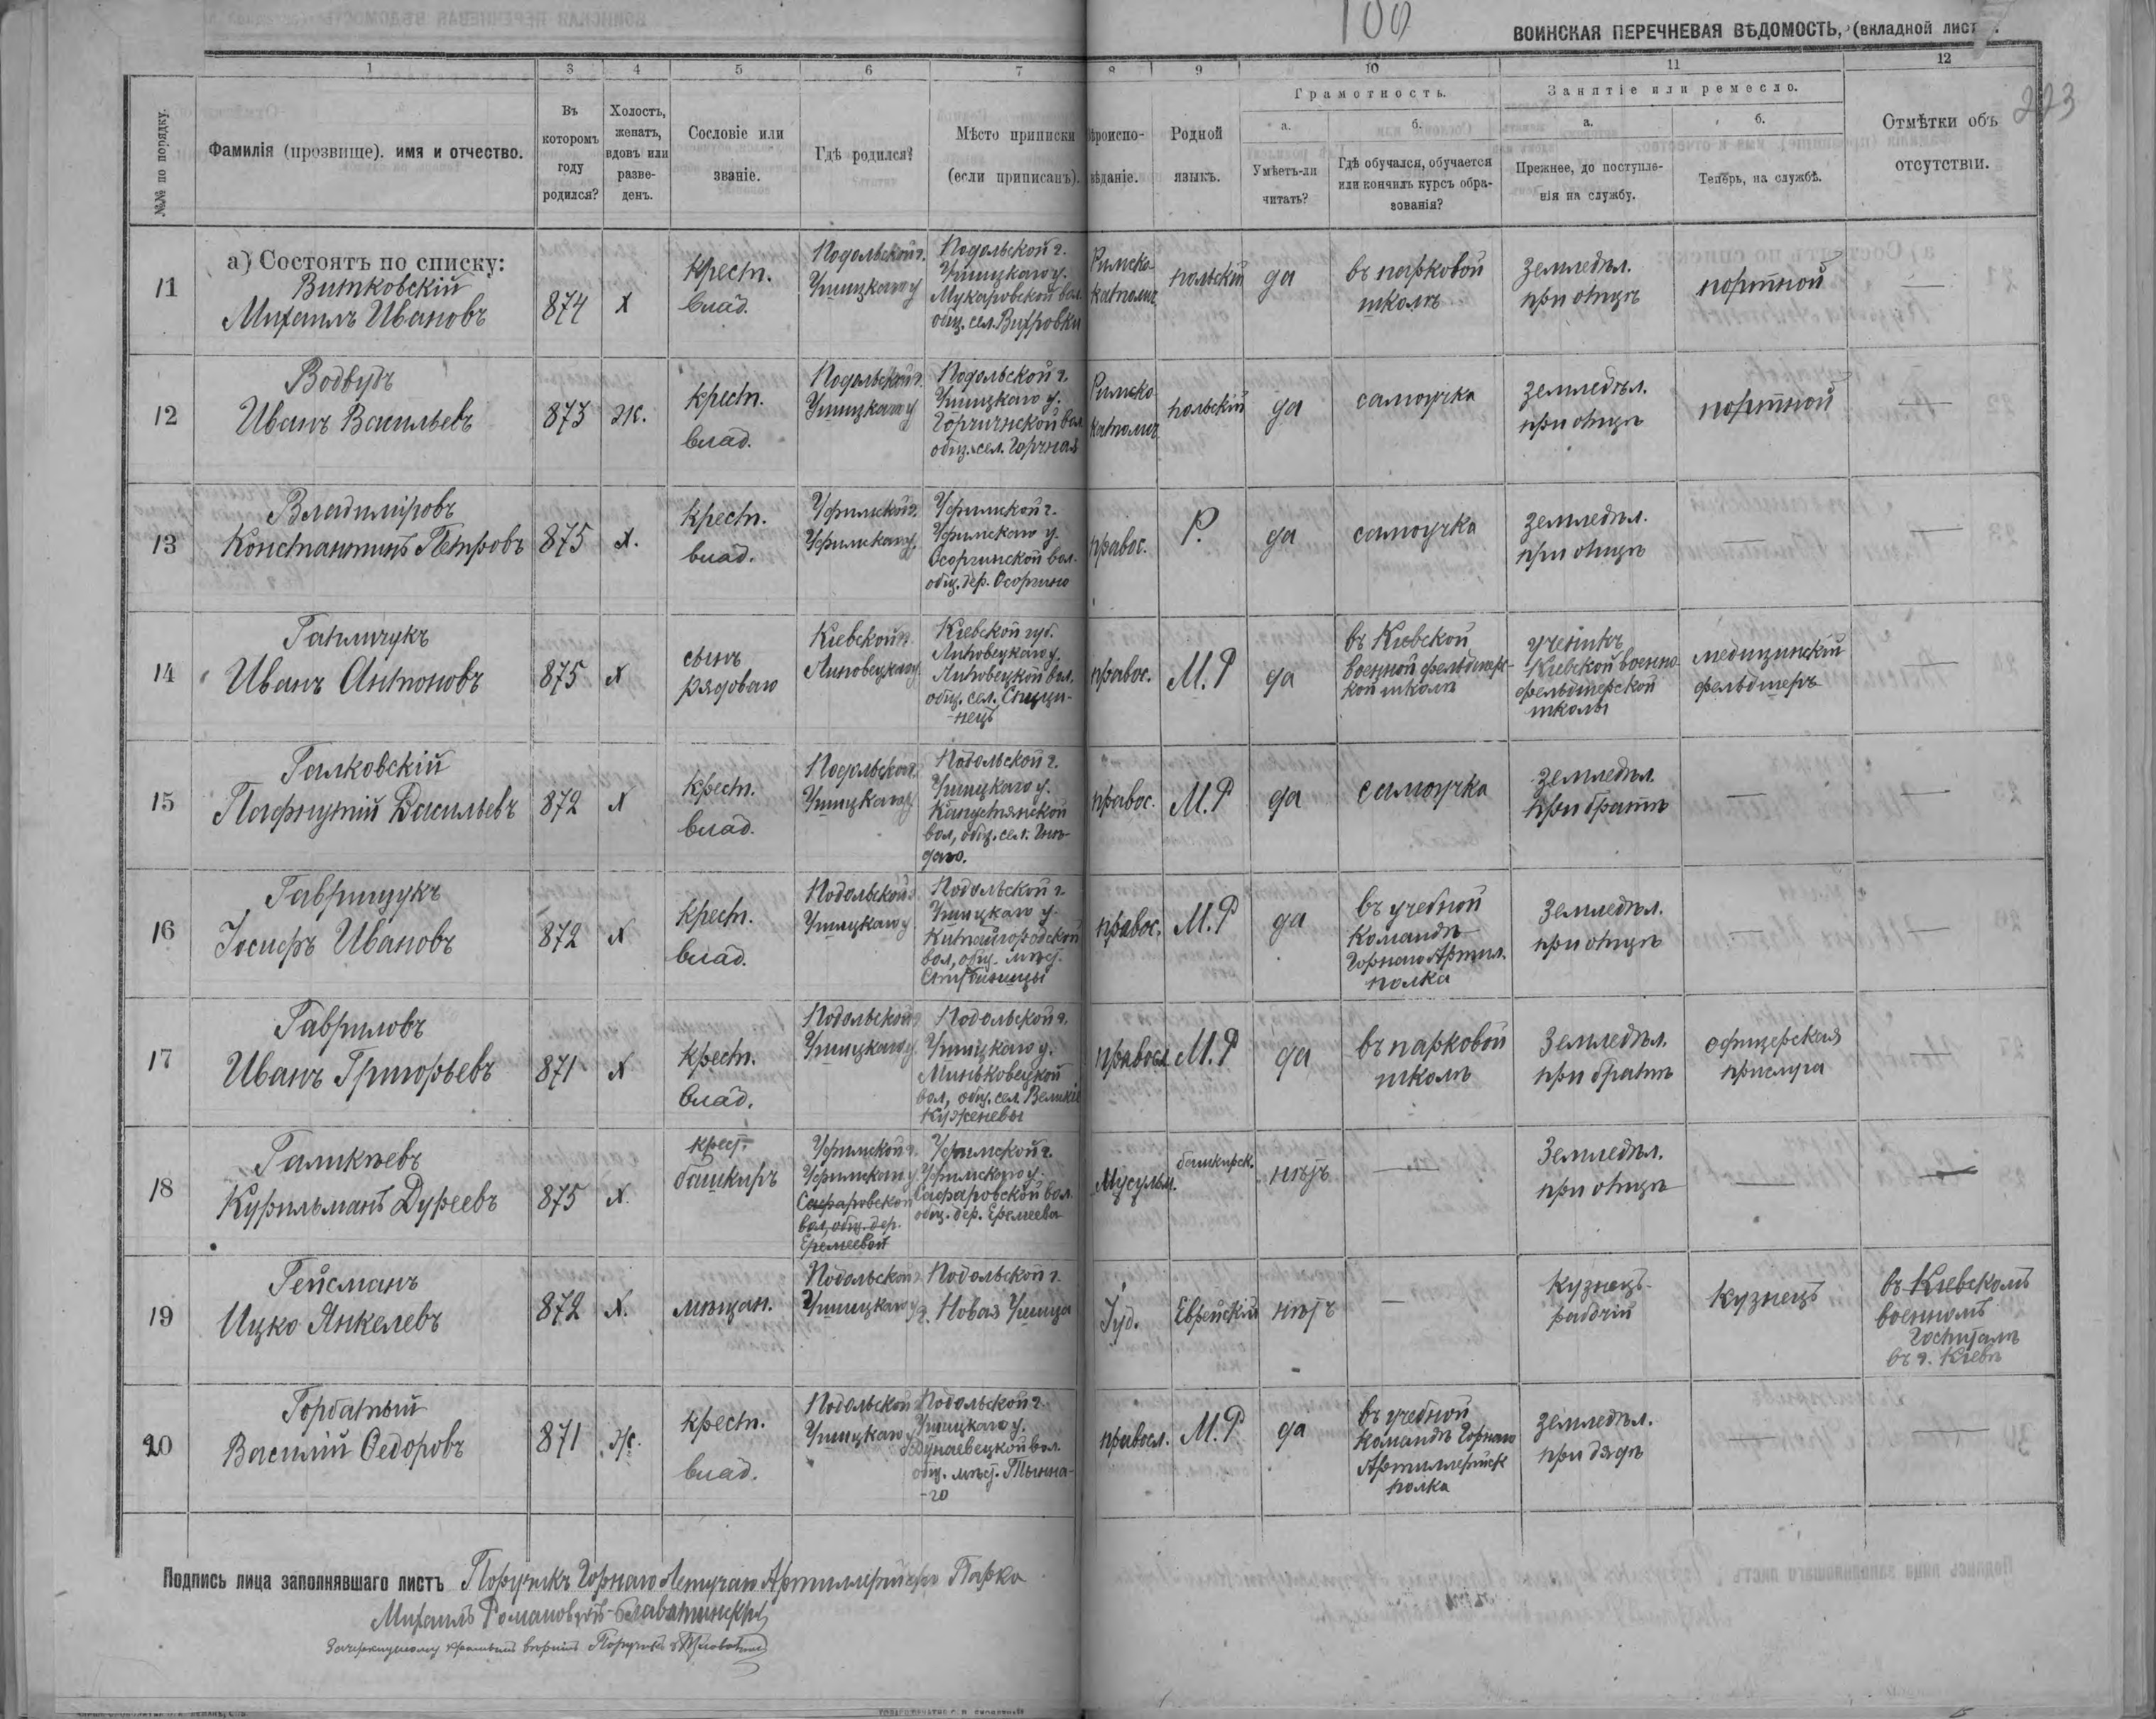 100
ВОИНСКАЯ ПЕРЕЧНЕВАЯ ВѢДОМОСТЬ, (вкладной лист
223
1 3 4 5 6 7 8 9 10 11 12
№№ по порядку.
Фамилія (прозвище). имя и отчество.
Въ которомъ году родился?
Холостъ, женатъ, вдовъ или разве-денъ.
Сословіе или званіе.
Гдѣ родился?
Мѣсто приписки (если приписанъ).
Вѣроиспо-вѣданіе.
Родной языкъ.
Грамотность.
а. Умѣетъ-ли читать?
б. Гдѣ обучался, обучается или кончилъ курсъ обра-зованія?
Занятіе или ремесло.
а. Прежнее, до поступле-нія на службу.
б. Теперь, на службѣ.
Отмѣтки объ отсутствіи.
а) Состоятъ по списку:
11 Витковскій Михаилъ Ивановъ 874 х Крест. влад. Подольской г. Ушицкаго у Подольской г. Ушицкаго у. Мукаровской вол. общ. сел. Вихровки Римско-католич. польскій да въ парковой школѣ земледѣл. при отцѣ портной —
12 Иванъ Васильевъ 873 ж. крест. влад. Подольской г. Ушицкаго у Подольской г. Ушицкаго у. вол. общ. сел. Римско католич. польскій да самоучка земледѣл. при отцѣ портной —
13 Владиміровъ Константинъ Петровъ 875 х. крест. влад. Уфимской г. Уфимскаго у. Уфимской г. Уфимскаго у. Осоргинской вол. общ. дер. Осоргино правос. Р. да самоучка земледѣл. при отцѣ — —
14 Иванъ Антоновъ 875 х сынъ рядоваго Кіевской г. Липовецкаго у. Кіевской губ. Липовецкаго у. Липовецкой вол. общ. сел. правос. М.Р да въ Кіевской военной фельдшерс-кой школѣ ученикъ Кіевской военно фельдшерской школы медицинскій фельдшеръ —
15 Галковскій Пафнутій Васильевъ 872 х крест. влад. Подольской г. Ушицкаго у Подольской г. Ушицкаго у. Капустянской вол, общ. сел. правос. М.Р да самоучка земледѣл. при братѣ — —
16 Гаврищукъ Іосифъ Ивановъ 872 х крест. влад. Подольской г. Ушицкаго у Подольской г. Ушицкаго у. Китайгородской вол, общ. мѣст. правос. М.Р да въ учебной командѣ Горнаго Артил. полка земледѣл. при отцѣ — —
17 Гавриловъ Иванъ Григорьевъ 871 х крест. влад. Подольской г. Ушицкаго у. Подольской г. Ушицкаго у. Миньковецкой вол, общ. сел. Великіе Кужелевы правосл М.Р да въ парковой школѣ земледѣл. при братѣ офицерская прислуга —
18 Галикѣевъ 875 х. крест. башкиръ Уфимской г. Уфимскаго у. Сафаровской вол, общ. дер. Еремеевой Уфимской г. Уфимскаго у. Сафаровской вол. общ. дер. Еремеева Мусульм. башкирск. нѣтъ — земледѣл. при отцѣ — —
19 Гейсманъ Ицко Янкелевъ 872 х. мѣщан. Подольской г. Ушицкаго у Подольской г. г. Новая Ушица Іуд. Еврейскій нѣтъ — кузнецъ-рабочій кузнецъ въ Кіевскомъ военномъ госпиталѣ въ г. Кіевѣ
20 Горбатый Василій Ѳедоровъ 871 ж. крест. влад. Подольской г. Ушицкаго у Подольской г. Ушицкаго у. Дунаевецкой вол. общ. мѣст. Тынна-го правосл. М.Р да въ учебной командѣ Горнаго Артиллерійск полка земледѣл. при дядѣ — —
Подпись лица заполнявшаго листъ Поручикъ Горнаго Летучаго Артиллерійскаго Парка
Михаилъ Романовичъ-Славатинскій
вѣрить Поручикъ